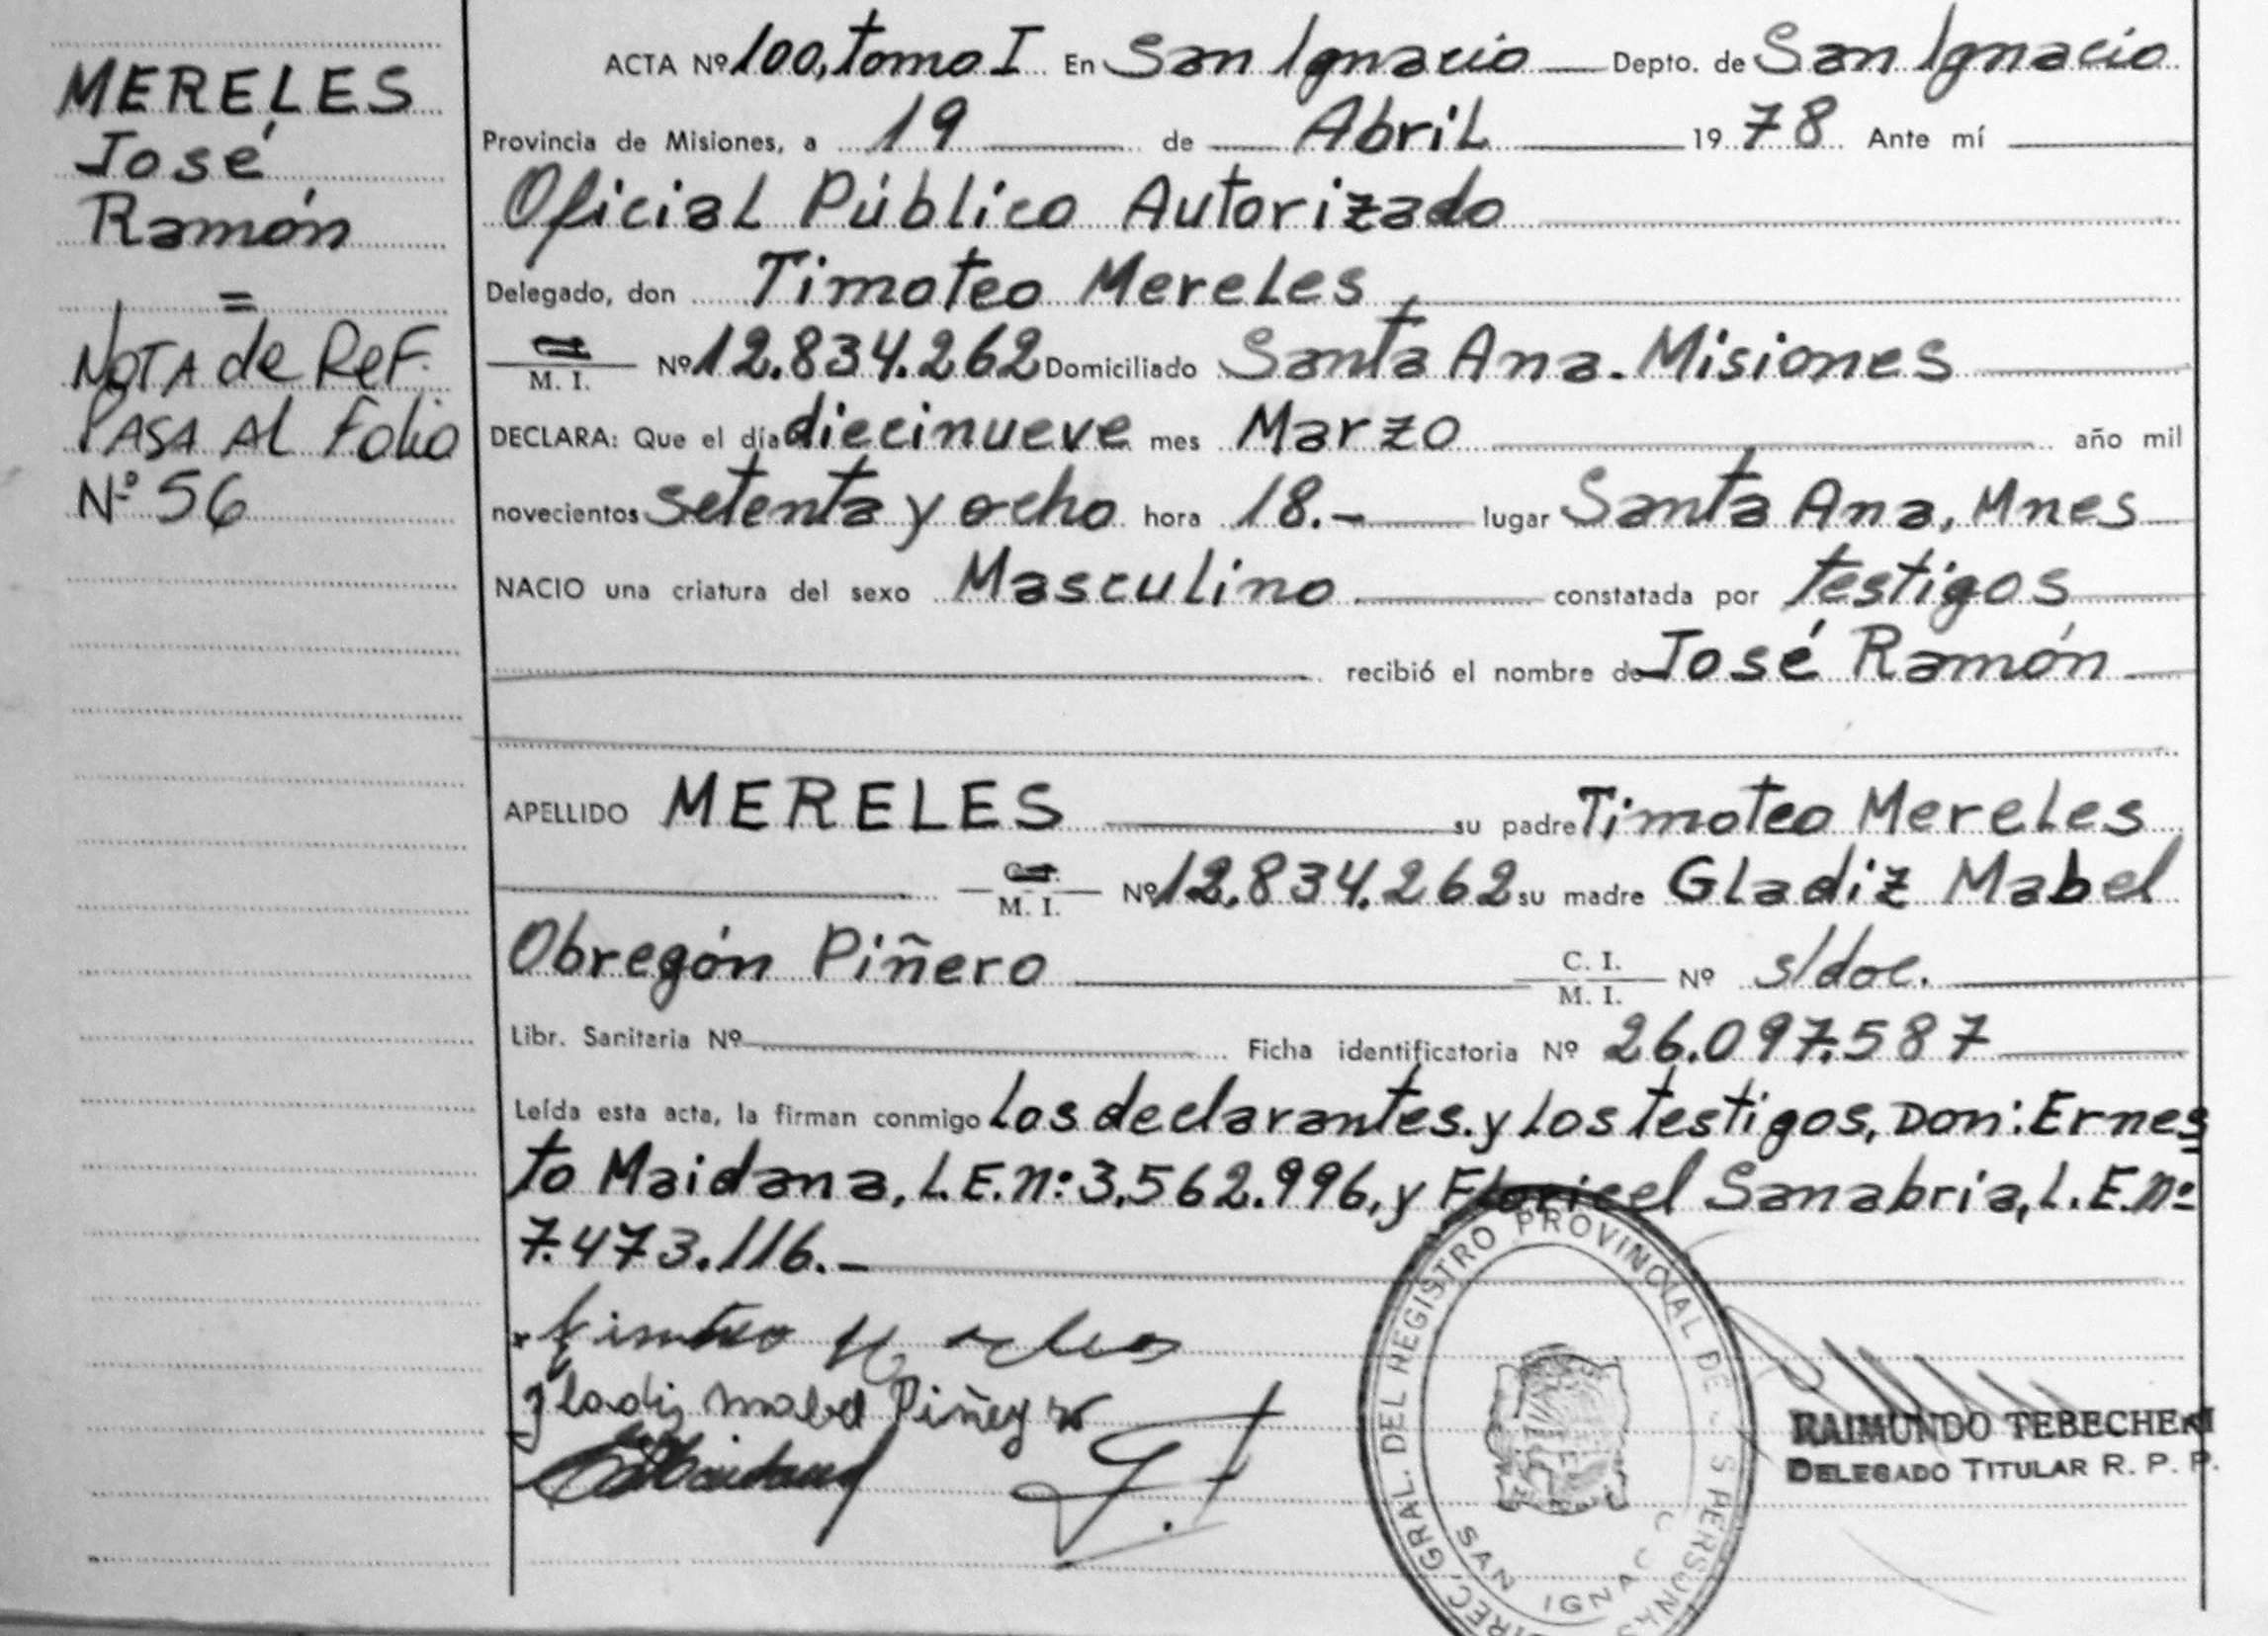 MERELES
José
Ramón
=
NOTA de ReF.
PASA AL Folio
Nº 56
ACTA Nº 100, tomo I En San Ignacio Depto. de San Ignacio
Provincia de Misiones, a 19 de Abril 1978 Ante mí
Oficial Público Autorizado
Delegado, don Timoteo Mereles,
M. I. Nº 12.834.262 Domiciliado Santa Ana. Misiones
DECLARA: Que el día diecinueve mes Marzo año mil
novecientos setenta y ocho hora 18.- lugar Santa Ana, Mnes
NACIO una criatura del sexo Masculino constatada por testigos
recibió el nombre de José Ramón
APELLIDO MERELES su padre Timoteo Mereles
M. I. Nº 12.834.262 su madre Gladiz Mabel
Obregón Piñero C. I. M. I. Nº s/doc.
Libr. Sanitaria Nº Ficha identificatoria Nº 26.097.587
Leída esta acta, la firman conmigo los declarantes. y los testigos, Don: Ernes
to Maidana, L.E.nº 3.562.996, y Floricel Sanabria, L.E.nº
7.473.116.-
Gladiz Mabel
DIREC. GRAL. DEL REGISTRO PROVINCIAL DE LAS PERSONAS
SAN IGNACIO
RAIMUNDO TEBECHERI
DELEGADO TITULAR R. P. P.